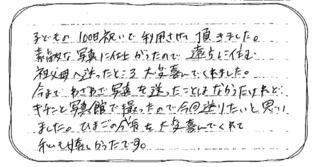 子どもの100日祝いで利用させて頂きました。
素敵な写真に仕上がったので遠方に住む
祖父母へ送ったところ大変喜んでくれました。
今まで わざわざ写真を送ったことはなかったけれど
キチンと写真館で撮ったので今回送りたいと思い
ました。ひまごの写真を大変喜んでくれて
私も嬉しかったです。